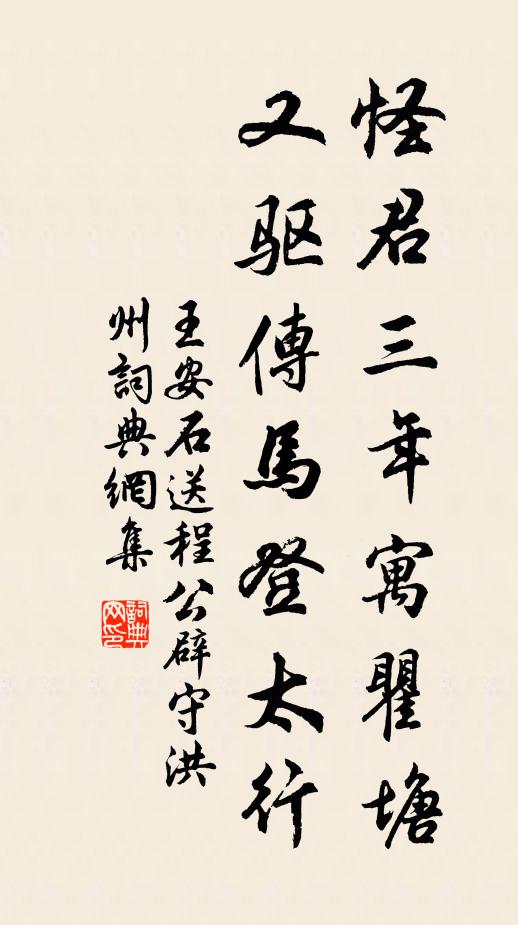 怪君三年寓瞿塘
又驱傳馬登太行
王安石送程公辟守洪
州詞典網集
詞典
网印